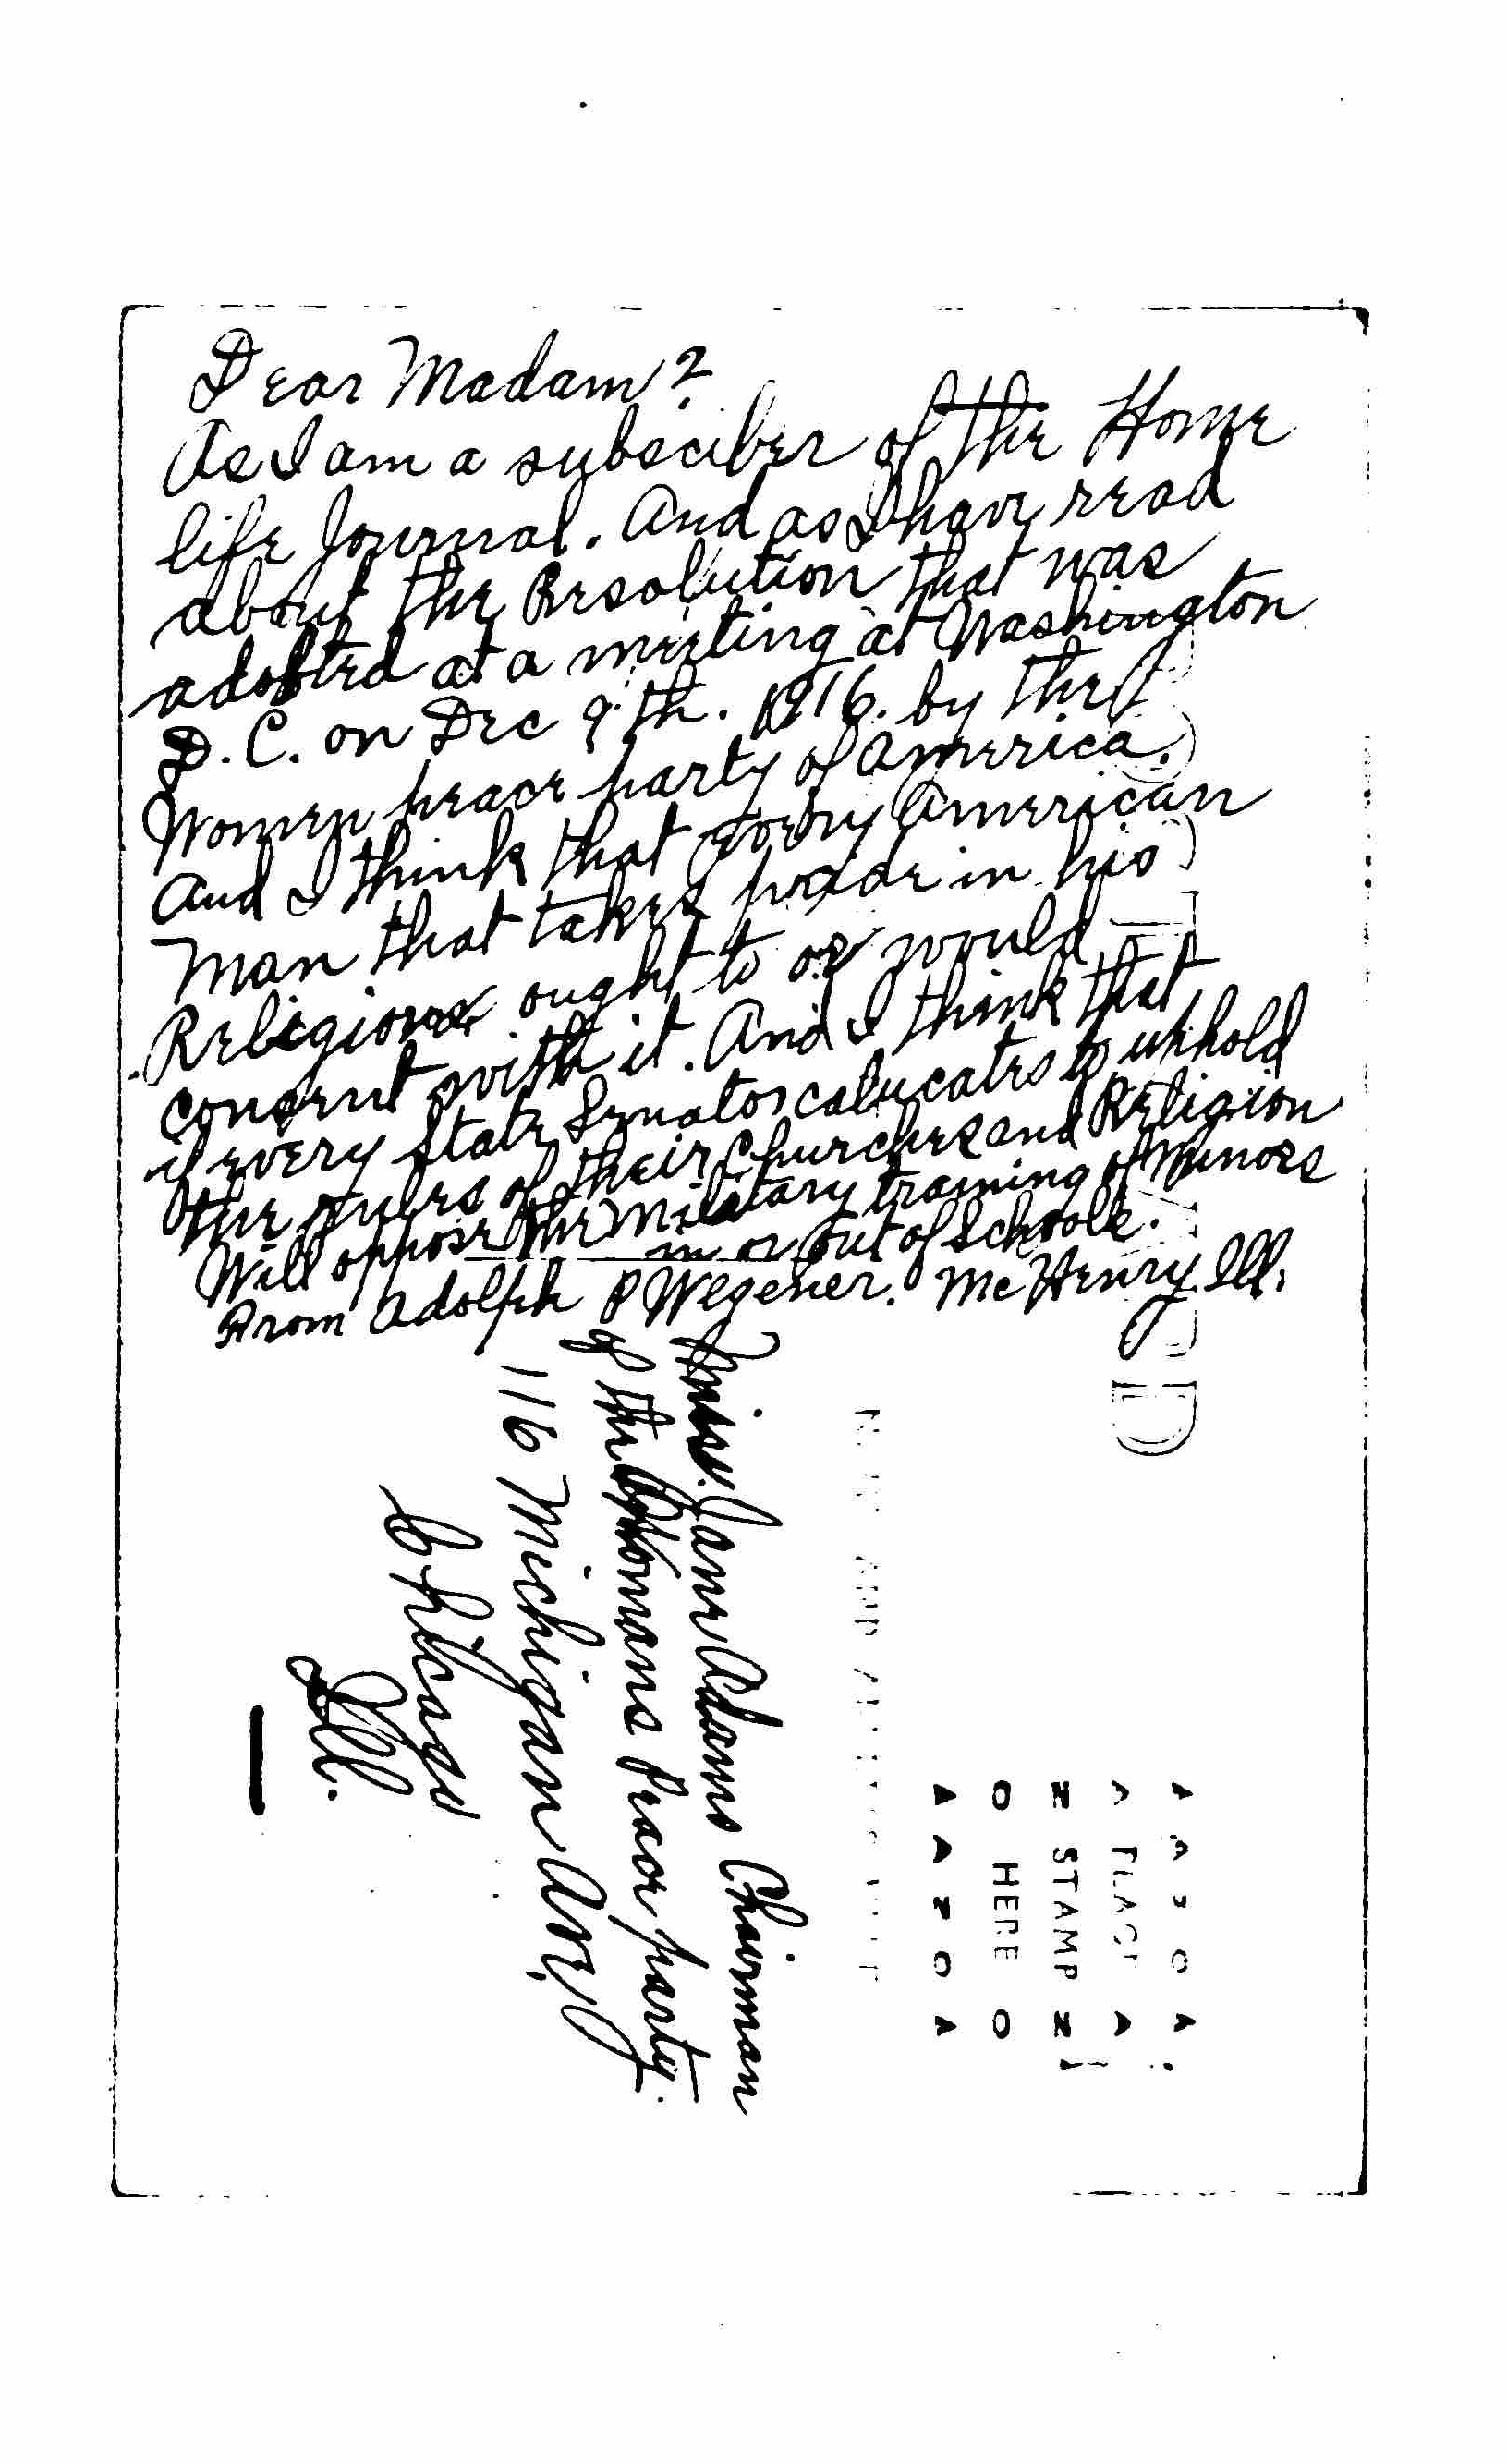 Dear Madam?
As I am a subsciber of the Home
life Journal. And as I have read
about the Resolution that was
adopted at a meeting at Washington
D.C. on Dec 9th. 1916. by the
Women peace party of America.
And I think that every American
Man that takes pride in his
Religions ought to or would
consent with it. And I think that
if every State Senator to uphold
the rulers of their Churches and Religion
Will oppose the Military training of Minors
in or out of Schools.
From Adolph P Wegener. McHenry Ill.
Miss. Jane Adams Chairman
of the Womans Peace party.
116 Michigan Ave,
Chicago
Ill.
PLACE
STAMP
HERE